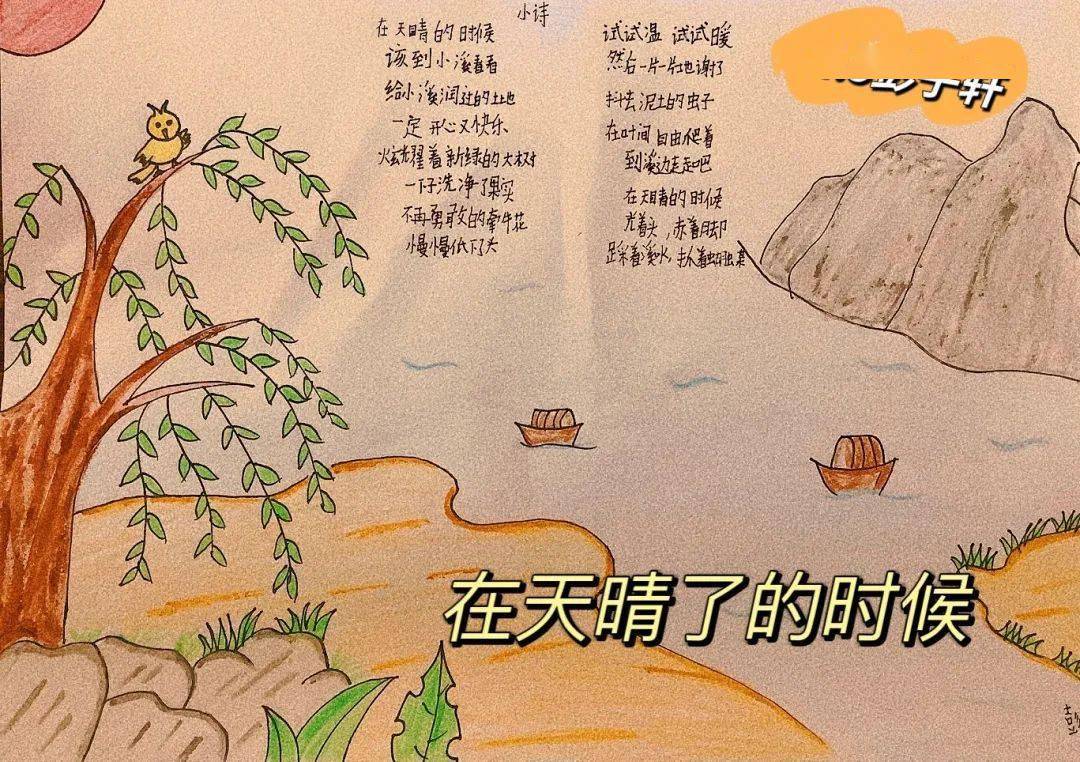 小诗
在天晴的时候
该到小溪看看
给小溪润过的土地
一定开心又快乐
炫耀着新绿的大树
一下子洗净了果实
不再勇敢的牵牛花
慢慢低下头
试试温 试试暖
然后一片一片地谢了
抖去泥土的虫子
在叶间自由爬着
到溪边走走吧
在天晴的时候
光着头,赤着脚
踩着溪水,抓着
在天晴了的时候
彭